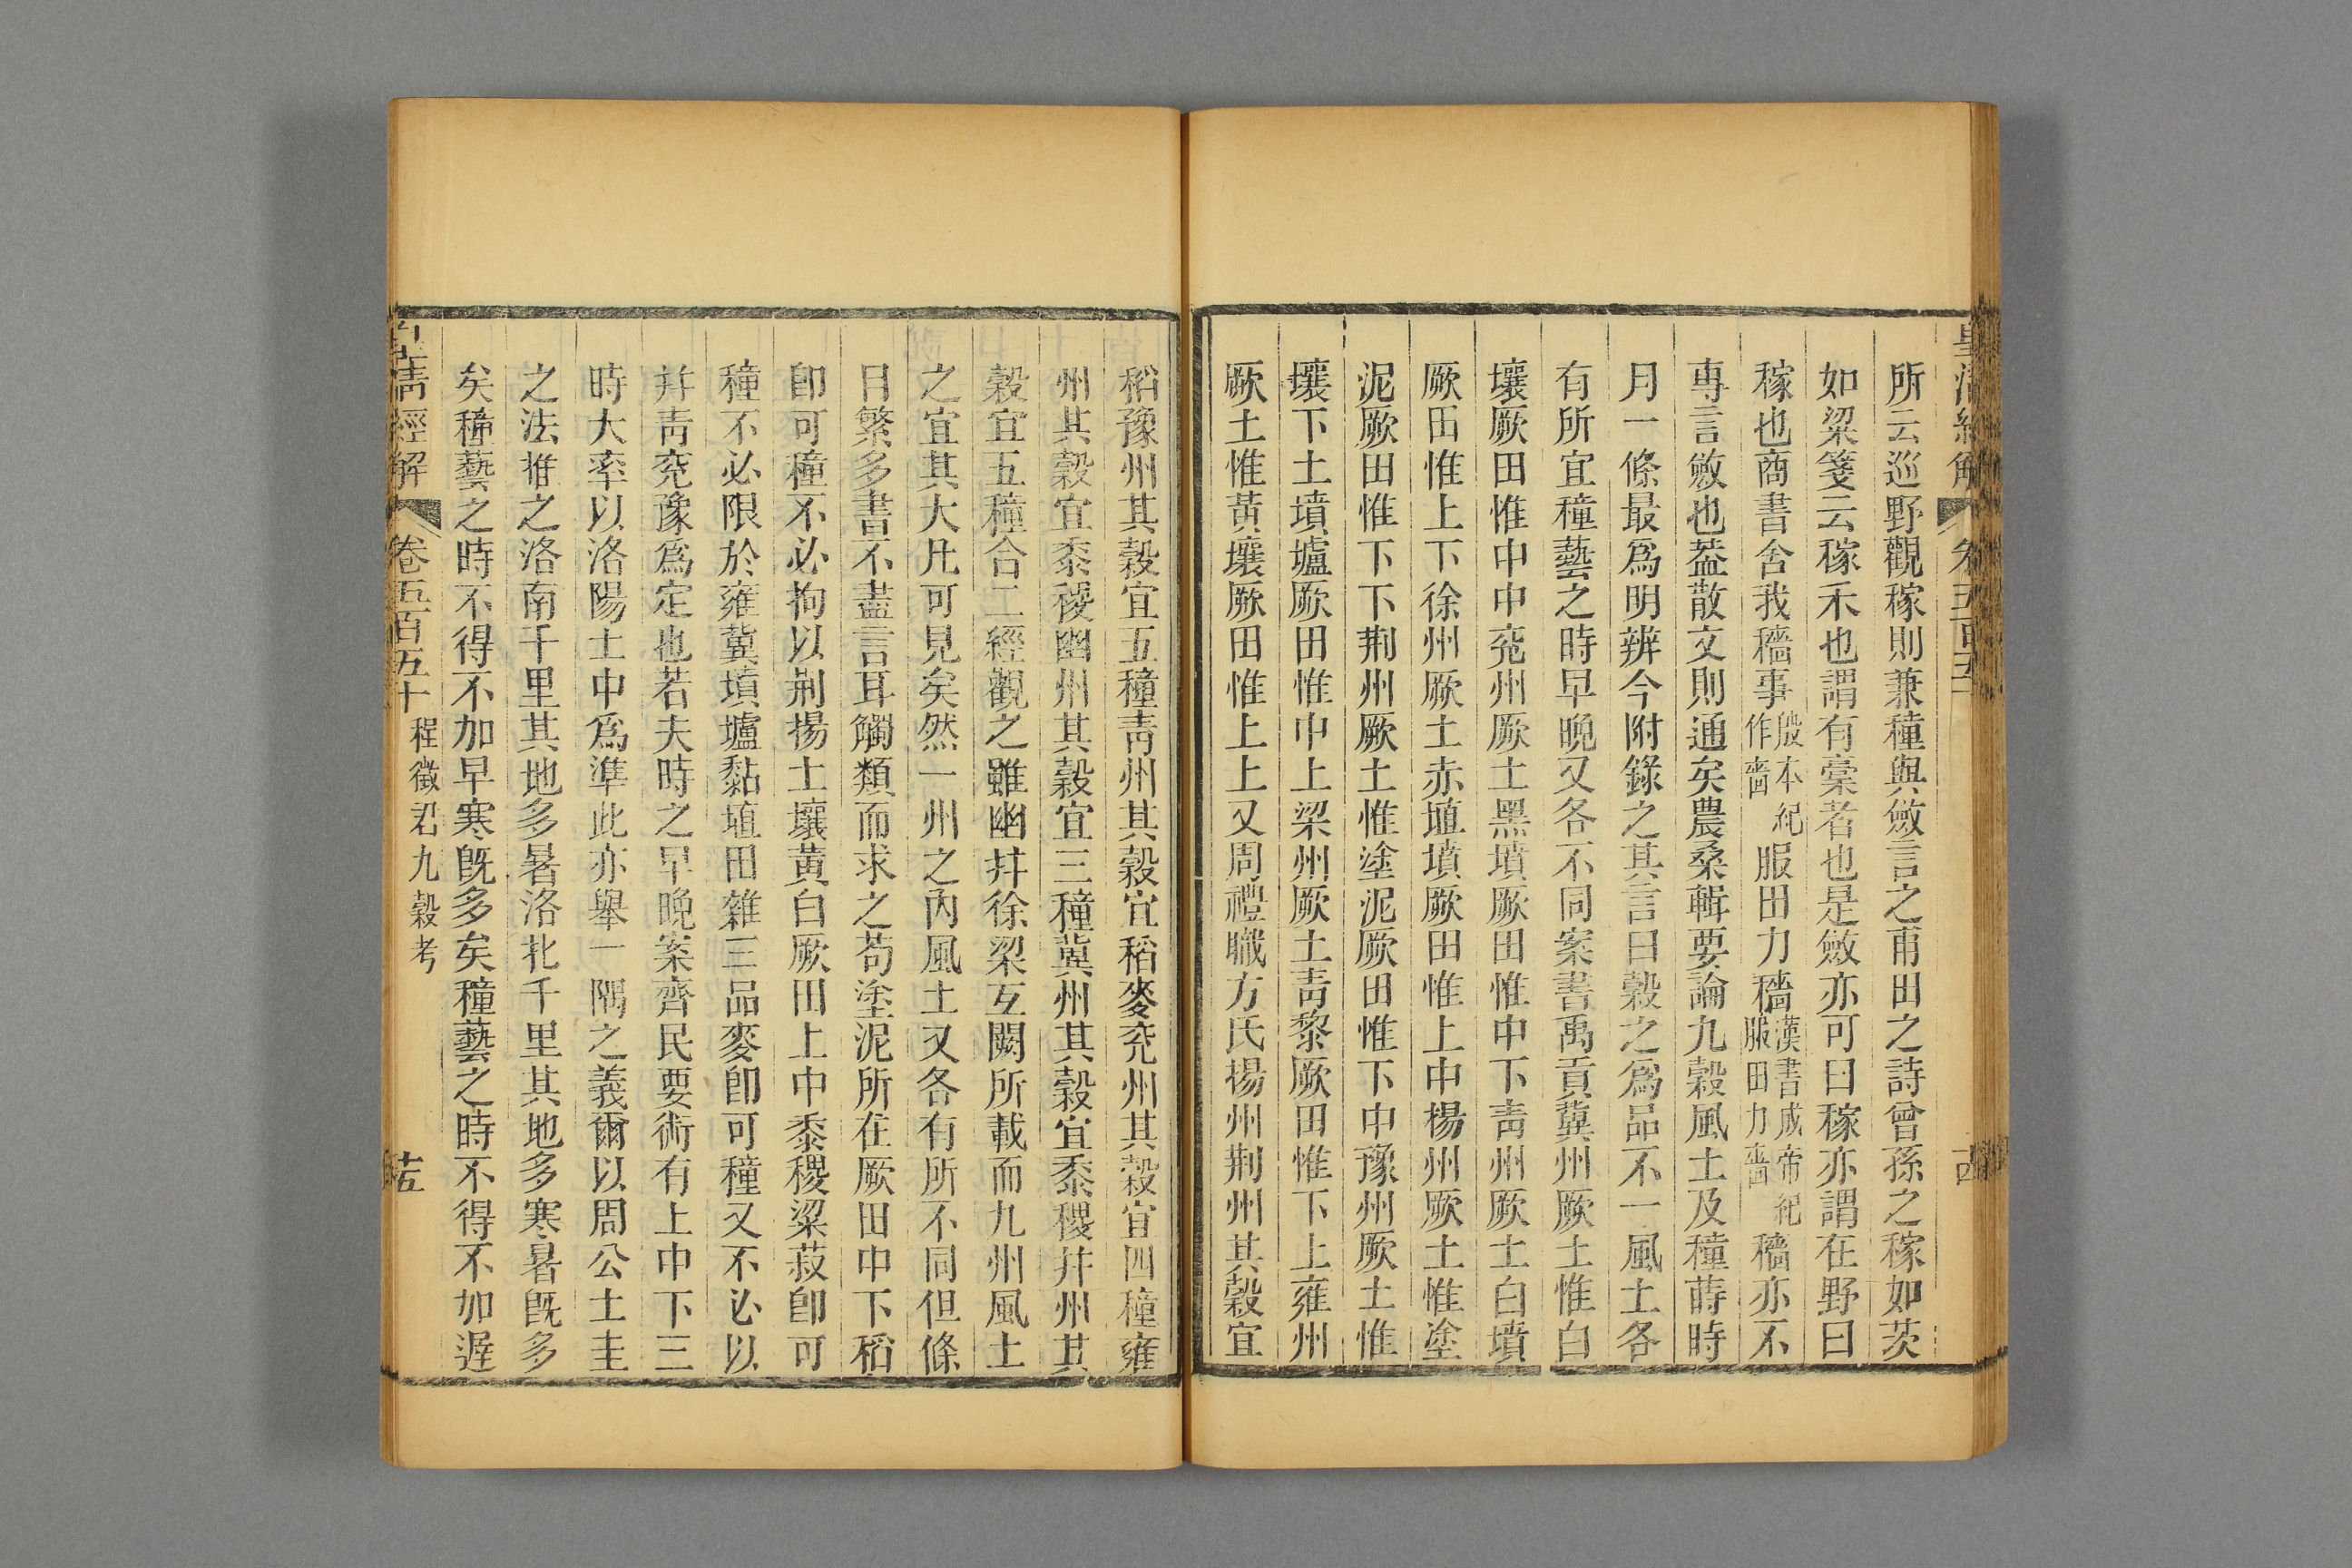 所云巡野觀稼則兼種與斂言之甫田之詩曾孫之稼如茨
如梁箋云稼禾也謂有稾者也是斂亦可曰稼亦謂在野曰
稼也商書舍我穡事殷本紀作嗇服田力穡漢書成帝紀服田力嗇穡亦不
專言斂也葢散文則通矣農桑輯要論九穀風土及種蒔時
月一條最爲明辨今附錄之其言曰穀之爲品不一風土各
有所宜種藝之時早晚又各不同案書禹貢冀州厥土惟白
壤厥田惟中中兖州厥土黑墳厥田惟中下青州厥土白墳
厥田惟上下徐州厥土赤埴墳厥田惟上中楊州厥土惟塗
泥厥田惟下下荆州厥土惟塗泥厥田惟下中豫州厥土惟
壤下土墳壚厥田惟中上梁州厥土青黎厥田惟下上雍州
厥土惟黃壤厥田惟上上又周禮職方氏揚州荆州其穀宜
稻豫州其穀宜五種青州其穀宜稻麥兖州其穀宜四種雍
州其穀宜黍稷幽州其穀宜三種冀州其穀宜黍稷并州其
穀宜五種合二經觀之雖幽并徐梁互闕所載而九州風土
之宜其大凡可見矣然一州之內風土又各有所不同但條
目繁多書不盡言耳觸類而求之苟塗泥所在厥田中下稻
卽可種不必拘以荆揚土壤黃白厥田上中黍稷粱菽卽可
種不必限於雍冀墳壚黏埴田雜三品麥卽可種又不必以
并青兖豫爲定也若夫時之早晚案齊民要術有上中下三
時大率以洛陽土中爲準此亦舉一隅之義爾以周公土圭
之法推之洛南千里其地多暑洛北千里其地多寒暑旣多
矣種藝之時不得不加早寒旣多矣種藝之時不得不加遅
皇清經解 卷五百五十 程徵君九穀考 十五